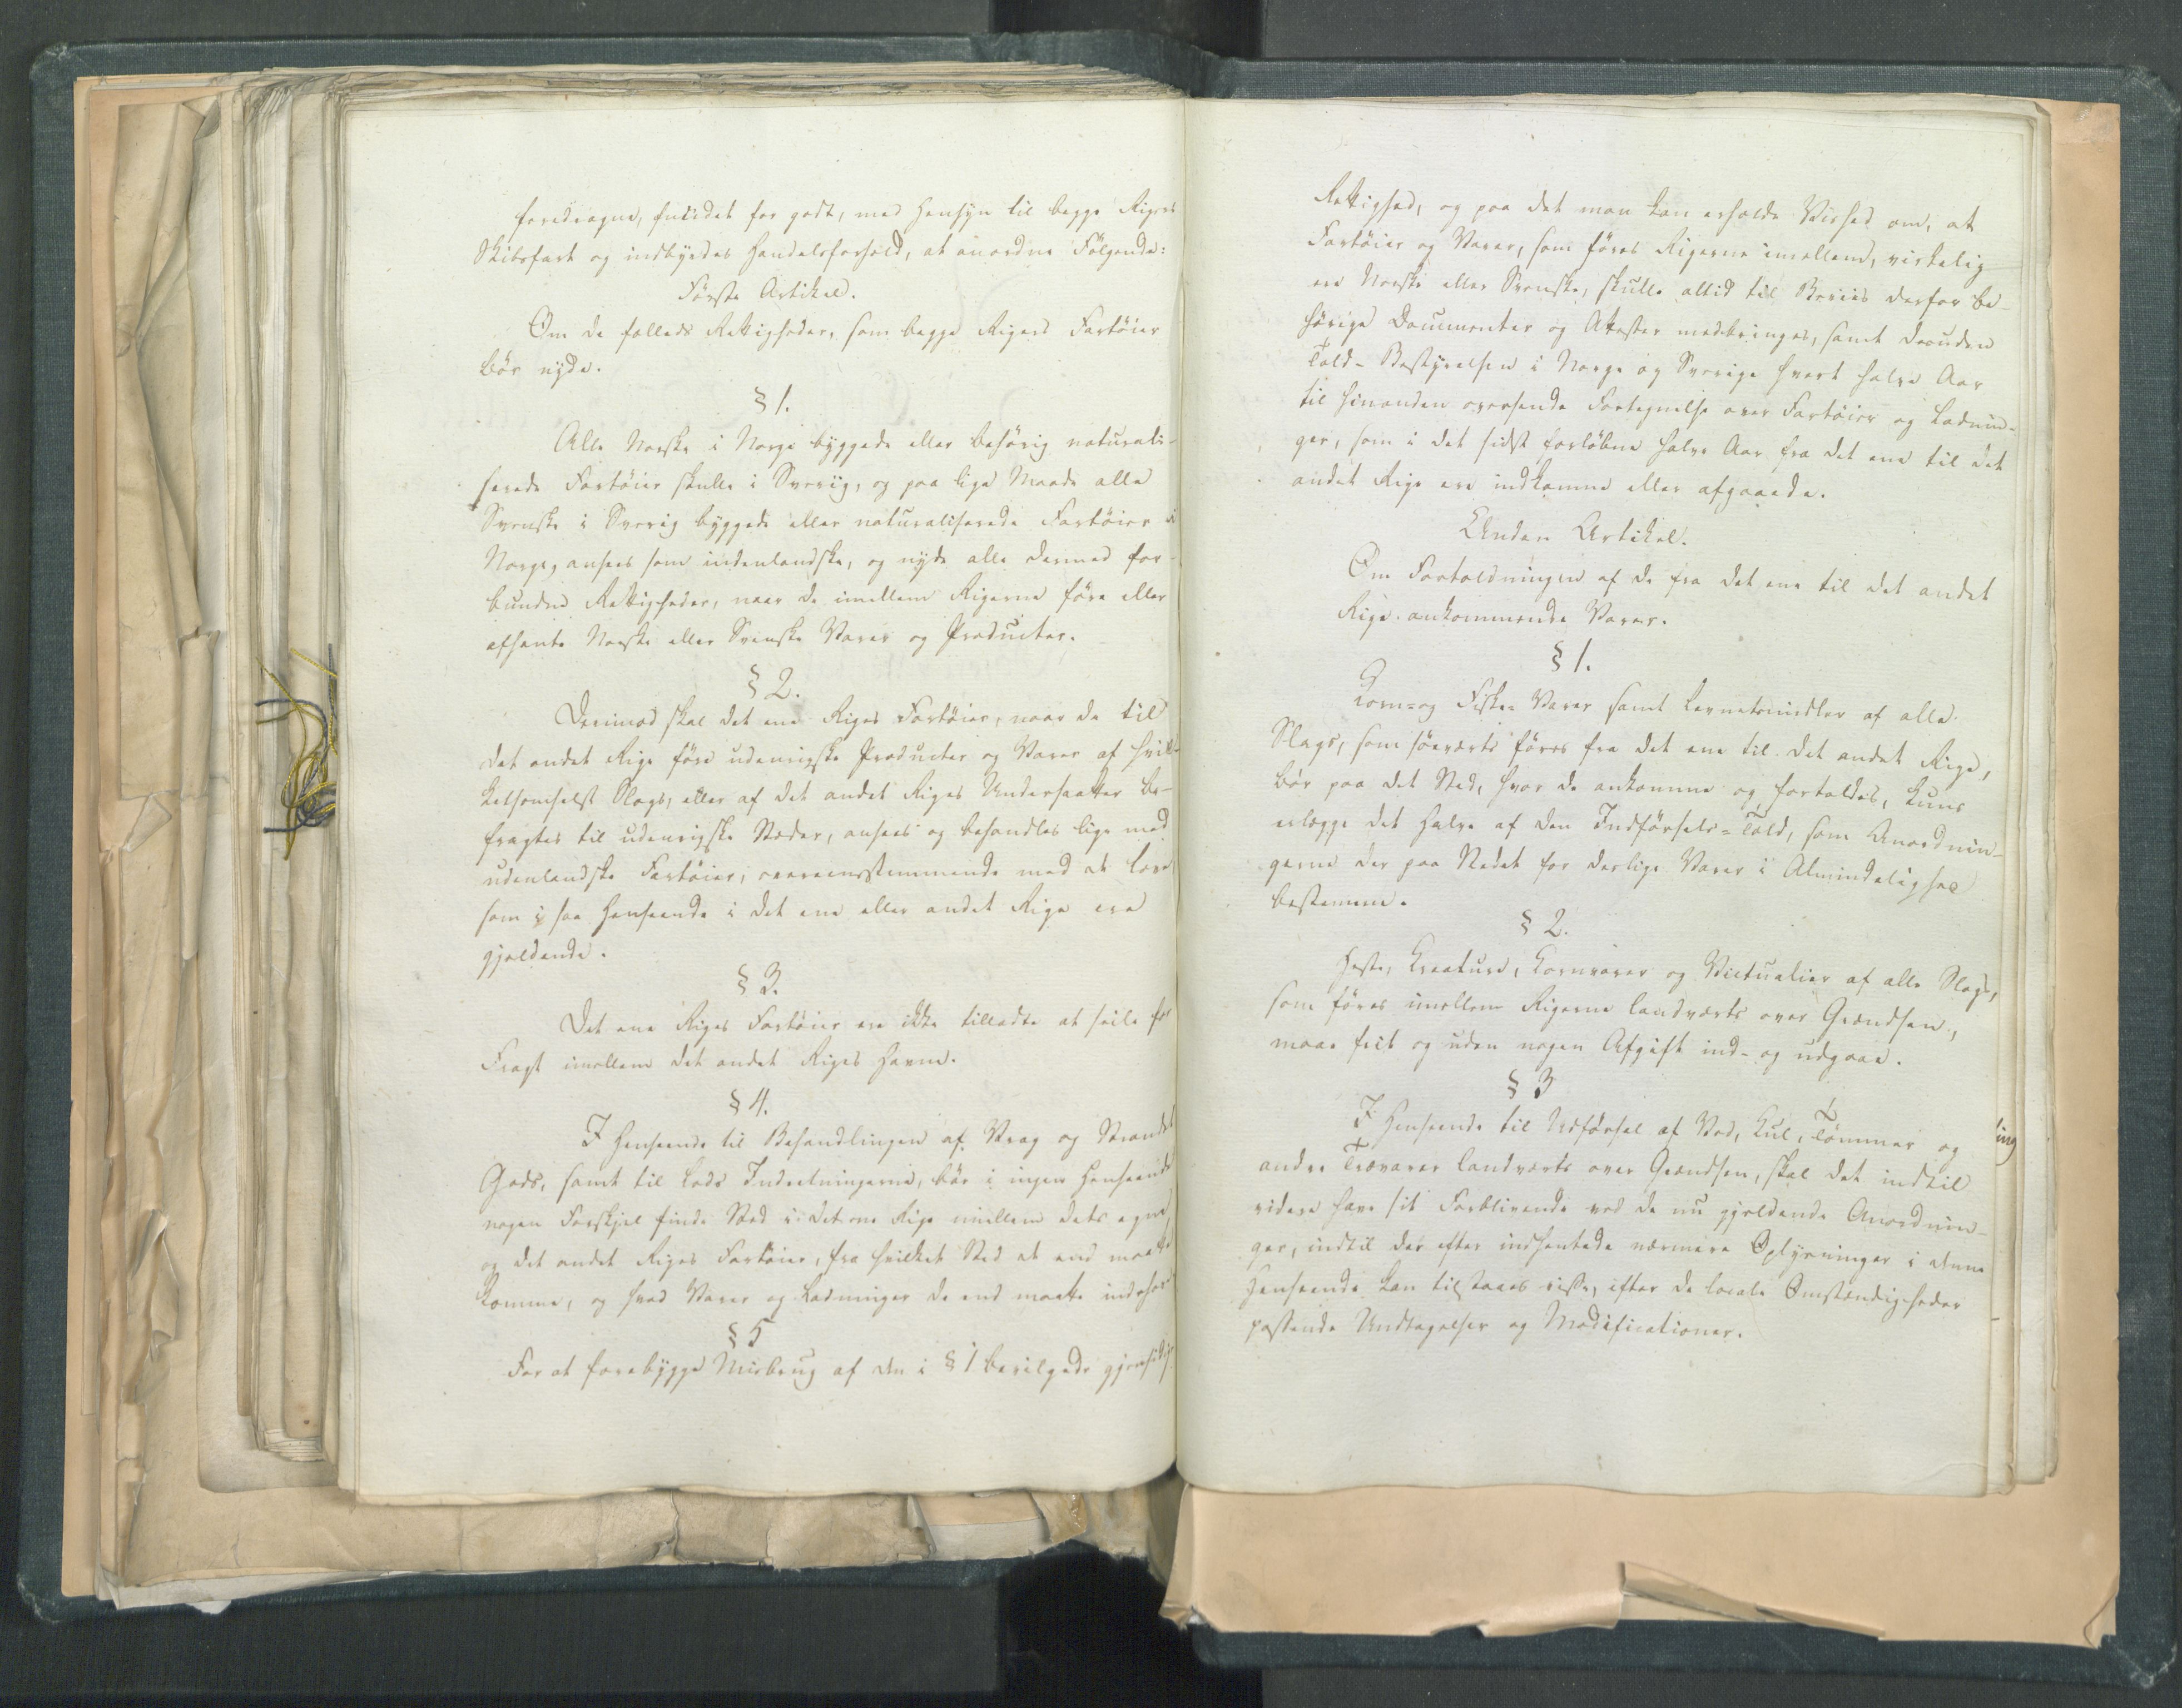 foredragne, fundet for godt, med Hensyn til begge Rigers
Skibsfart og indbyrdes Handelsforhold, at anordne Følgende:
Første Artikel.
Om de fælleds Rettigheder, som begge Rigers Fartøier
bør nyde.
§ 1.
Alle Norske i Norge byggede eller behørig naturali-
serede Fartøier skulle i Sverig, og paa lige Maade alle
Svenske i Sverig byggede eller naturaliserede Fartøier i
Norge, ansees som indenlandske, og nyde alle dermed for-
bundne Rettigheder, naar de imellem Rigerne føre eller
afhente Norske eller Svenske Varer og Producter.
§ 2.
Derimod skal det ene Riges Fartøier, naar de til
det andet Rige føre udenrigske Producter og Varer af hvil-
ketsomhelst Slags, eller af det andet Riges Undersaatter be-
fragtes til udenrigske Stæder, ansees og behandles lige med
udenlandske Fartøier, overeensstemmende med de Love
som i saa Henseende i det ene eller andet Rige ere
gjeldende.
§ 3.
Det ene Riges Fartøier ere ikke tilladte at seile for
Fragt imellem det andet Riges Havne.
§ 4.
I Henseende til Behandlingen af Vrag og Strandet
Gods, samt til Lods Indretningerne, bør i ingen Henseende
nogen Forskjel finde Sted i det ene Rige imellem dets egne,
og det andet Riges Fartøier, fra hvilket Sted de end maatte
komme, og hvad Varer og Ladninger de end maatte indehave.
§ 5
For at forebygge Misbrug af den i § 1 bevilgede gjensidige
Rettighed, og paa det man kan erholde Vished om, at
Fartøier og Varer, som føres Rigerne imellem, virkelig
ere Norske eller Svenske, skulle altid til Beviis derfor be-
hørige Documenter og Attester medbringes, samt desuden
Told-Bestyrelsen i Norge og Sverige hvert halve Aar
til hinanden oversende Fortegnelse over Fartøier og Ladnin-
ger, som i det sidst forløbne halve Aar fra det ene til det
andet Rige ere indkomne eller afgaaede.
Anden Artikel.
Om Fortoldningen af de fra det ene til det andet
Rige ankommende Varer.
§ 1.
Korn- og Fiske-Varer samt Levnetsmidler af alle
Slags, som søeværts føres fra det ene til det andet Rige,
bør paa det Sted, hvor de ankomme og fortoldes, kuns
erlægge det Halve af den Indførsels-Told, som Anordnin-
gerne der paa Stedet for deslige Varer i Almindelighed
bestemme.
§ 2.
Heste, Kreature, Kornvarer og Victualier af alle Slags,
som føres imellem Rigerne landværts over Grændsen,
maae frit og uden nogen Afgift ind- og udgaae.
§ 3
I Henseende til Udførsel af Ved, Kul, Tømmer og
andre Trævarer landværts over Grændsen, skal det indtil
videre have sit Forblivende ved de nu gjeldende Anordnin-
ger, indtil der efter indhentede nærmere Oplysninger i denne
Henseende kan tilstaaes visse, efter de locale Omstændigheder
passende Undtagelser og Modificationer.
ing